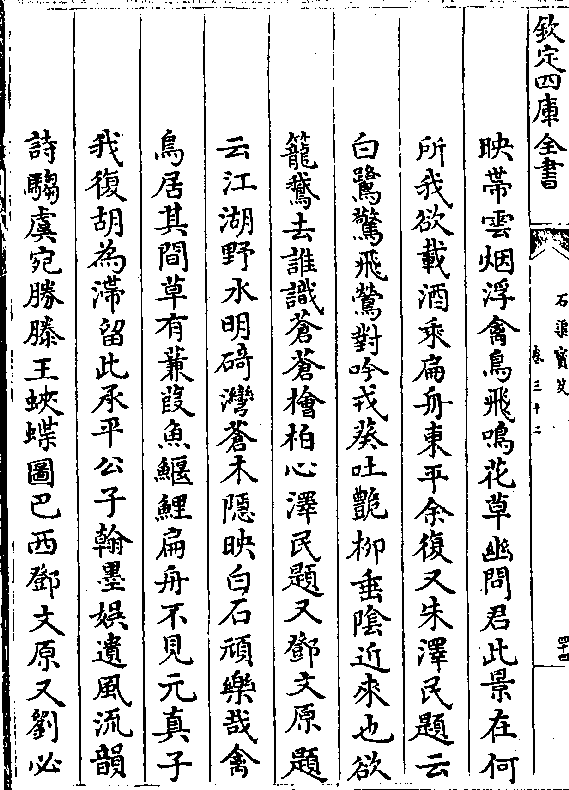 欽定四庫全書
石渠寶笈
卷三十二
四十四
映帶雲烟浮禽鳥飛鳴花草幽問君此景在何
所我欲載酒乘扁舟東平余復又朱澤民題云
白鷺驚飛鶯對吟戎葵吐艷柳垂隂近來也欲
籠鵞去誰識蒼蒼檜柏心澤民題又鄧文原題
云江湖野水明碕灣蒼木隱映白石頑樂哉禽
鳥居其間草有蒹葭魚鰋鯉扁舟不見元真子
我復胡為滯留此承平公子翰墨娯遺風流韻
詩騶虞宛勝滕王蛺蝶圖巴西鄧文原又劉必